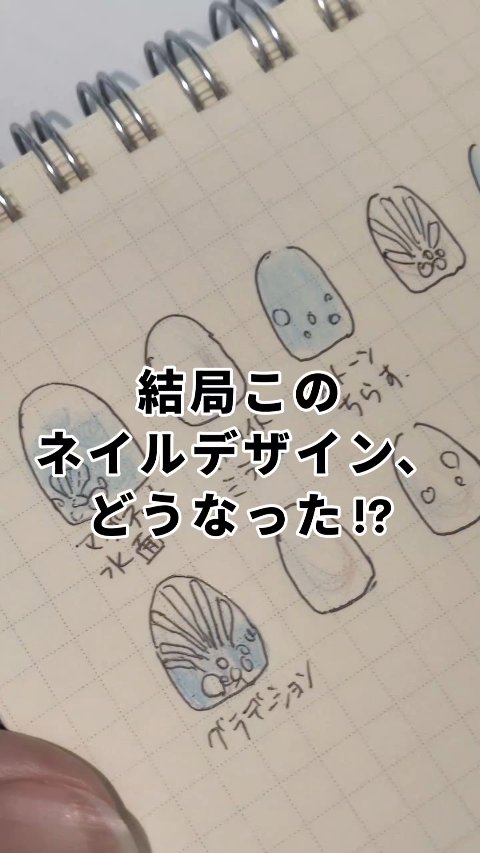 結局この
ネイルデザイン、
どうなった⁉
ちらす.
水面
グラデーション